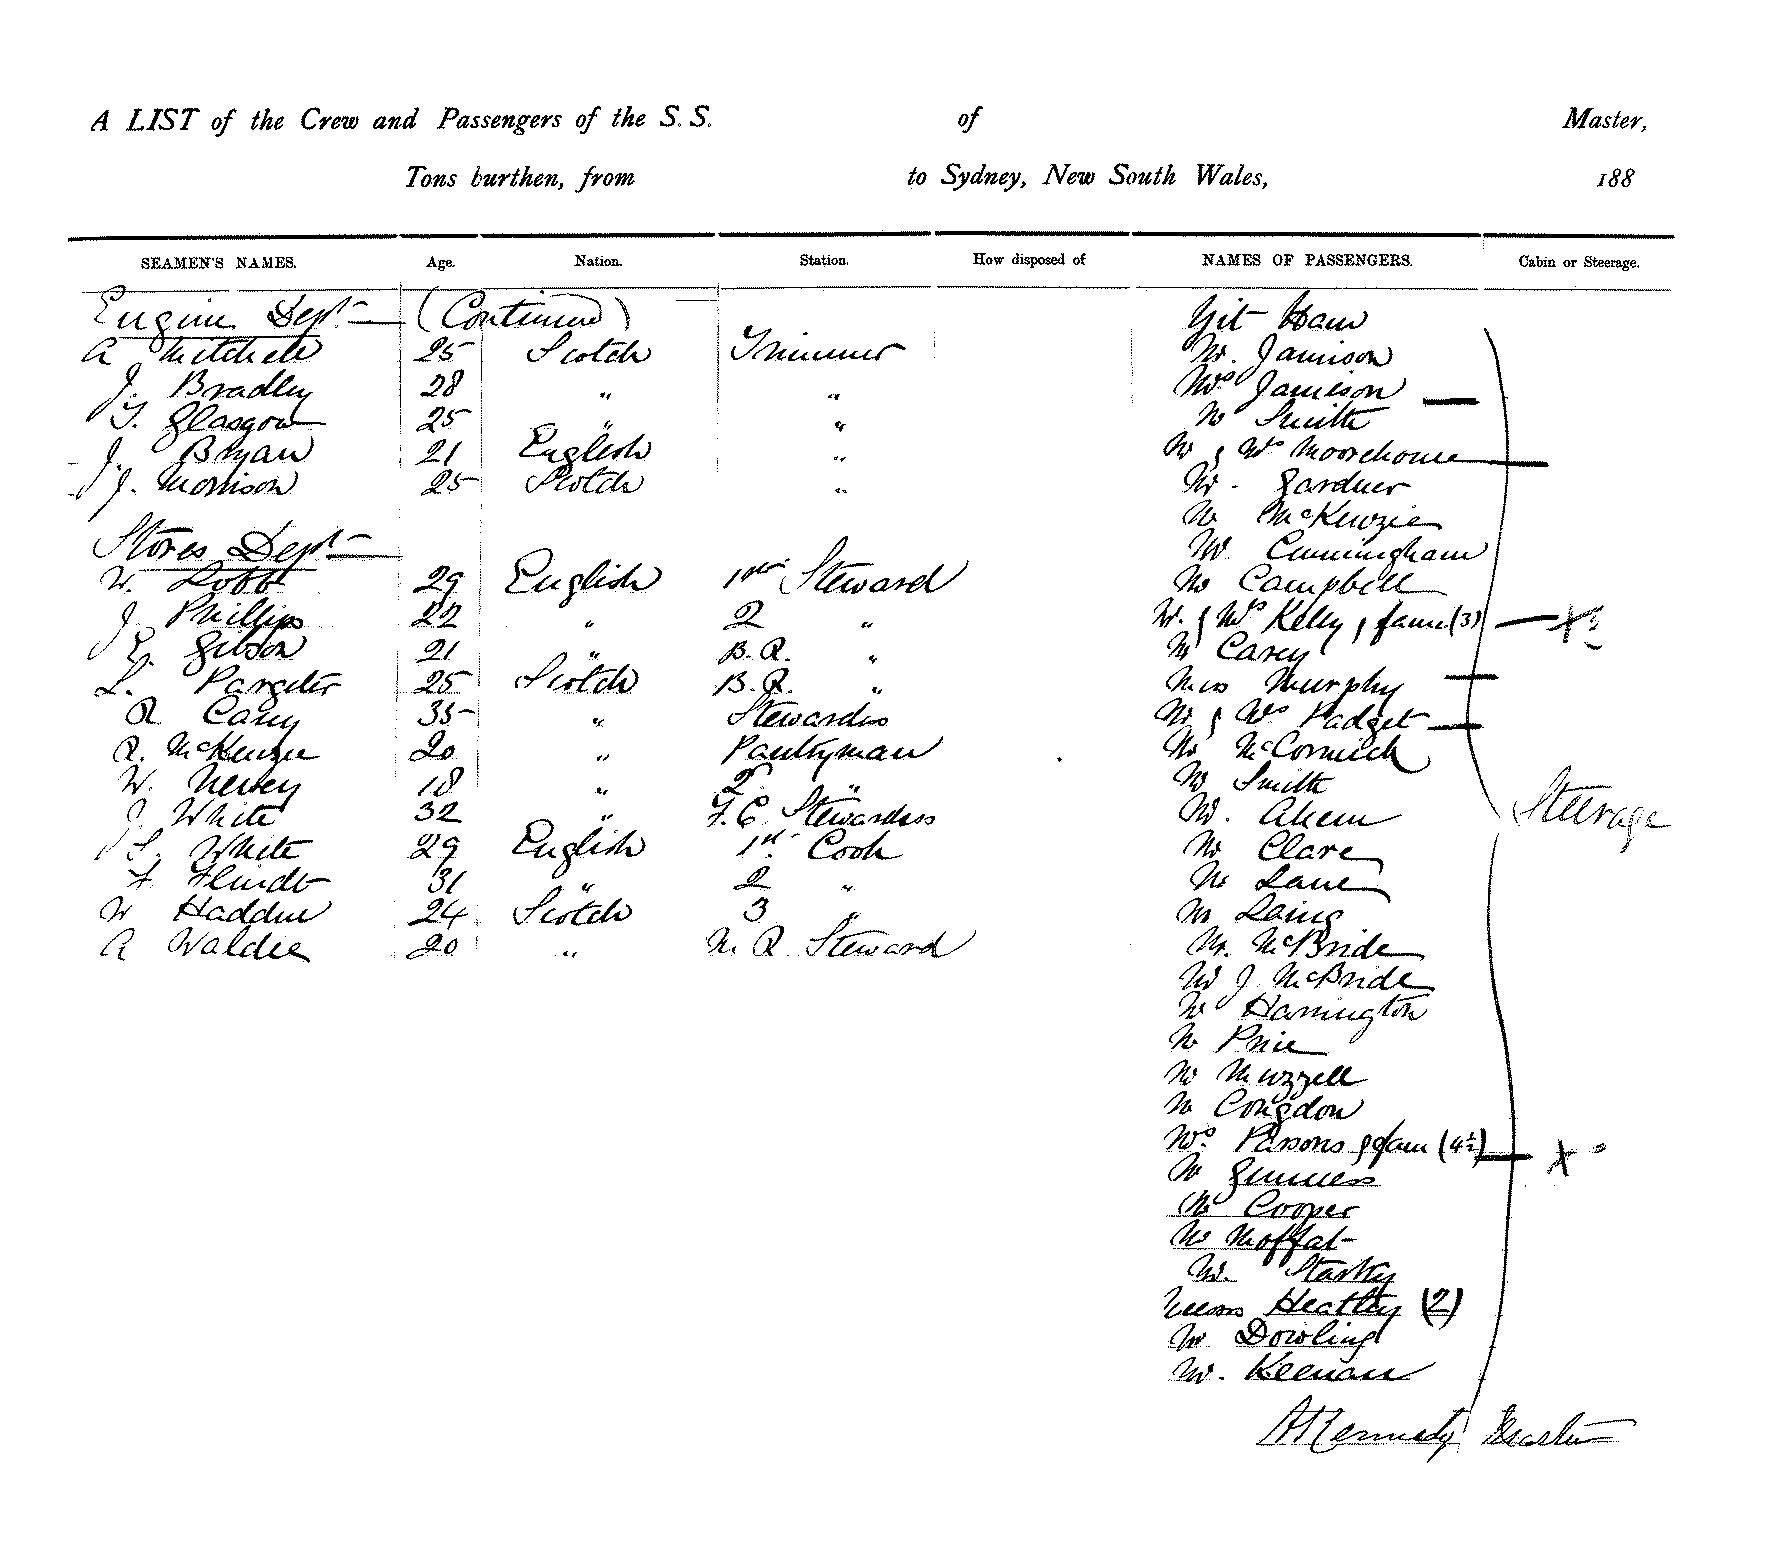 A LIST of the Crew and Passengers of the S.S. of Master,
Tons burthen, from to Sydney, New South Wales, 188
SEAMEN'S NAMES. Age. Nation. Station. How disposed of NAMES OF PASSENGERS. Cabin or Steerage.
Engine Dept (Continued)
A Mitchell 25 Scotch Trimmer
J. Bradley 28 " "
T. Glasgow 25 " "
J. Bryan 21 English "
J. Morrison 25 Scotch "
Stores Dept
W. Lobb 29 English 1st Steward
J. Phillips 22 " 2 "
E. Gibson 21 " B.R. "
L. Pargiter 25 Scotch B.R. "
R Carey 35 " Stewardss
R. McKenzie 20 " Pantryman
W. Nersey 18 " 2 "
J. White 32 " F.C. Stewardess
S. White 29 English 1st Cook
F. Flindt 31 " 2 "
W Haddin 24 Scotch 3 "
A Waldie 20 " M.R. Steward
Yit Ham
Mr. Jamison
Mrs Jamieson
Mr Smith
Mr & Mrs Moorehouse
Mr. Gardner
Mr McKenzie
Mr. Cunningham
Mr Campbell
Mr. & Mrs Kelly & fam (3) X
Mr Carey
Miss Murphy
Mr & Mrs Padget
Mr McCormick
Mr Smith
Mr. Ahern
Steerage
Mr Clare
Mr Lane
Mr Laing
Mr. McBride
Mr J McBride
Mr Harrington
Mr Price
Mr Muzzell
Mr Congdon
Mrs Parsons & fam (4½) X
Mr
Mr Cooper
Mr Moffat
Mr. Starky
Heatley (2)
Mr Dowling
Mr. Keenan
A Kennedy Master